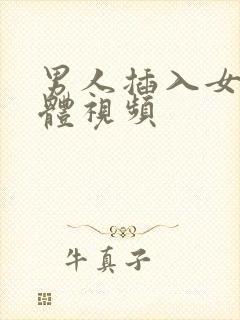 男人插入女
體視頻
牛真子